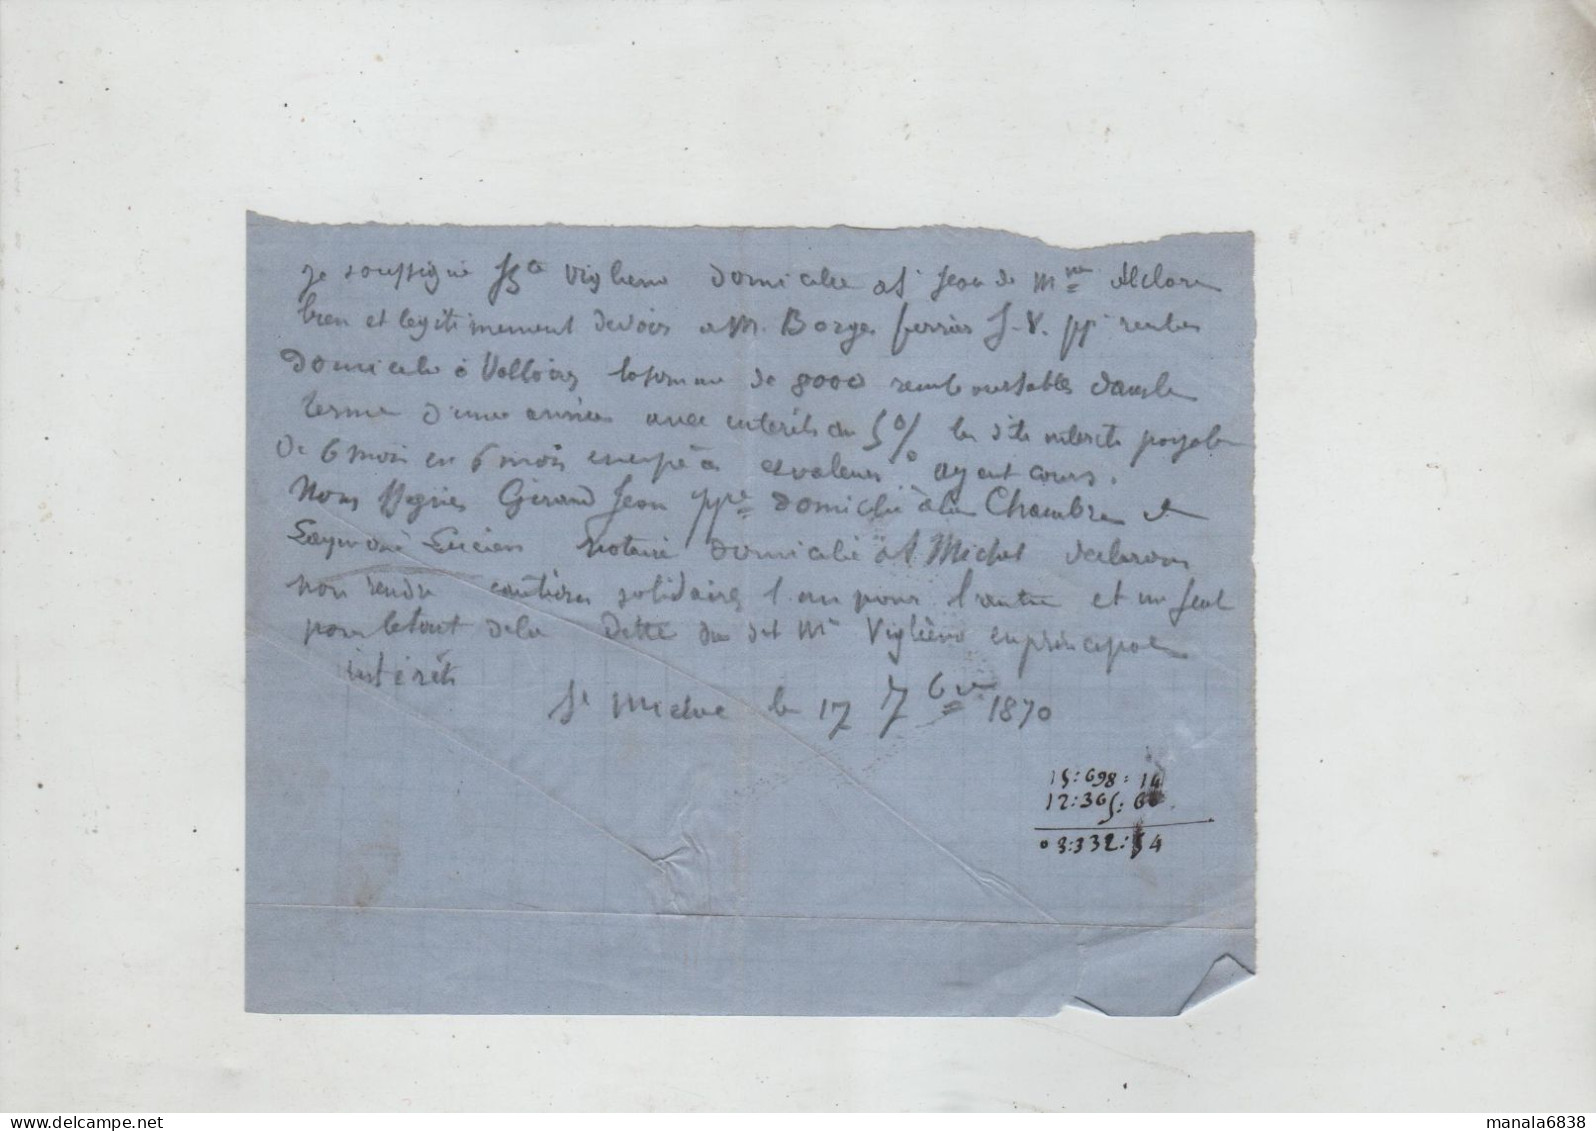 je soussigné J Bte Viglieno domicilié a St Jean de Mne déclare
bien et legitimement devoir a M. Borge ferrier J-V. ppre rentier
domicilié à Valloires la somme de 8000 remboursables dans le
terme d'une année avec interêts du 5 % les dits interêts payables
de 6 mois en 6 mois en espèces et valeurs ayant cours.
Nous Girard Jean ppre domicilié à la Chambre et
Raymond Lucien Notaire domicilié a St Michel declarons
nous rendre cautions solidaires l'un pour l'autre et un seul
pour le tout de la dette du dit Mr Viglièno en principal
intérêts
St Michel le 17 7bre 1870
15:698:14
12:365:60
03:332:54
manala6838